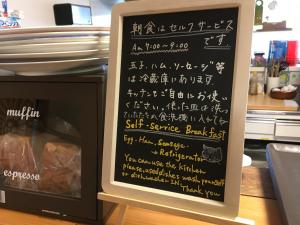 朝食はセルフサービス
です
Am 7:00〜9:00
玉子、ハム、ソーセージ等
は冷蔵庫にあります
キッチンもご自由にお使い
ください。使った皿は洗っ
ていただくか食洗機に入れて下さい
Self-service Breakfast
Egg, Ham, Sausage
→ Refrigerator
You can use the kitchen
Please, used dishes wash yourself
or dishwasher IN. Thank you
muffin
espresso